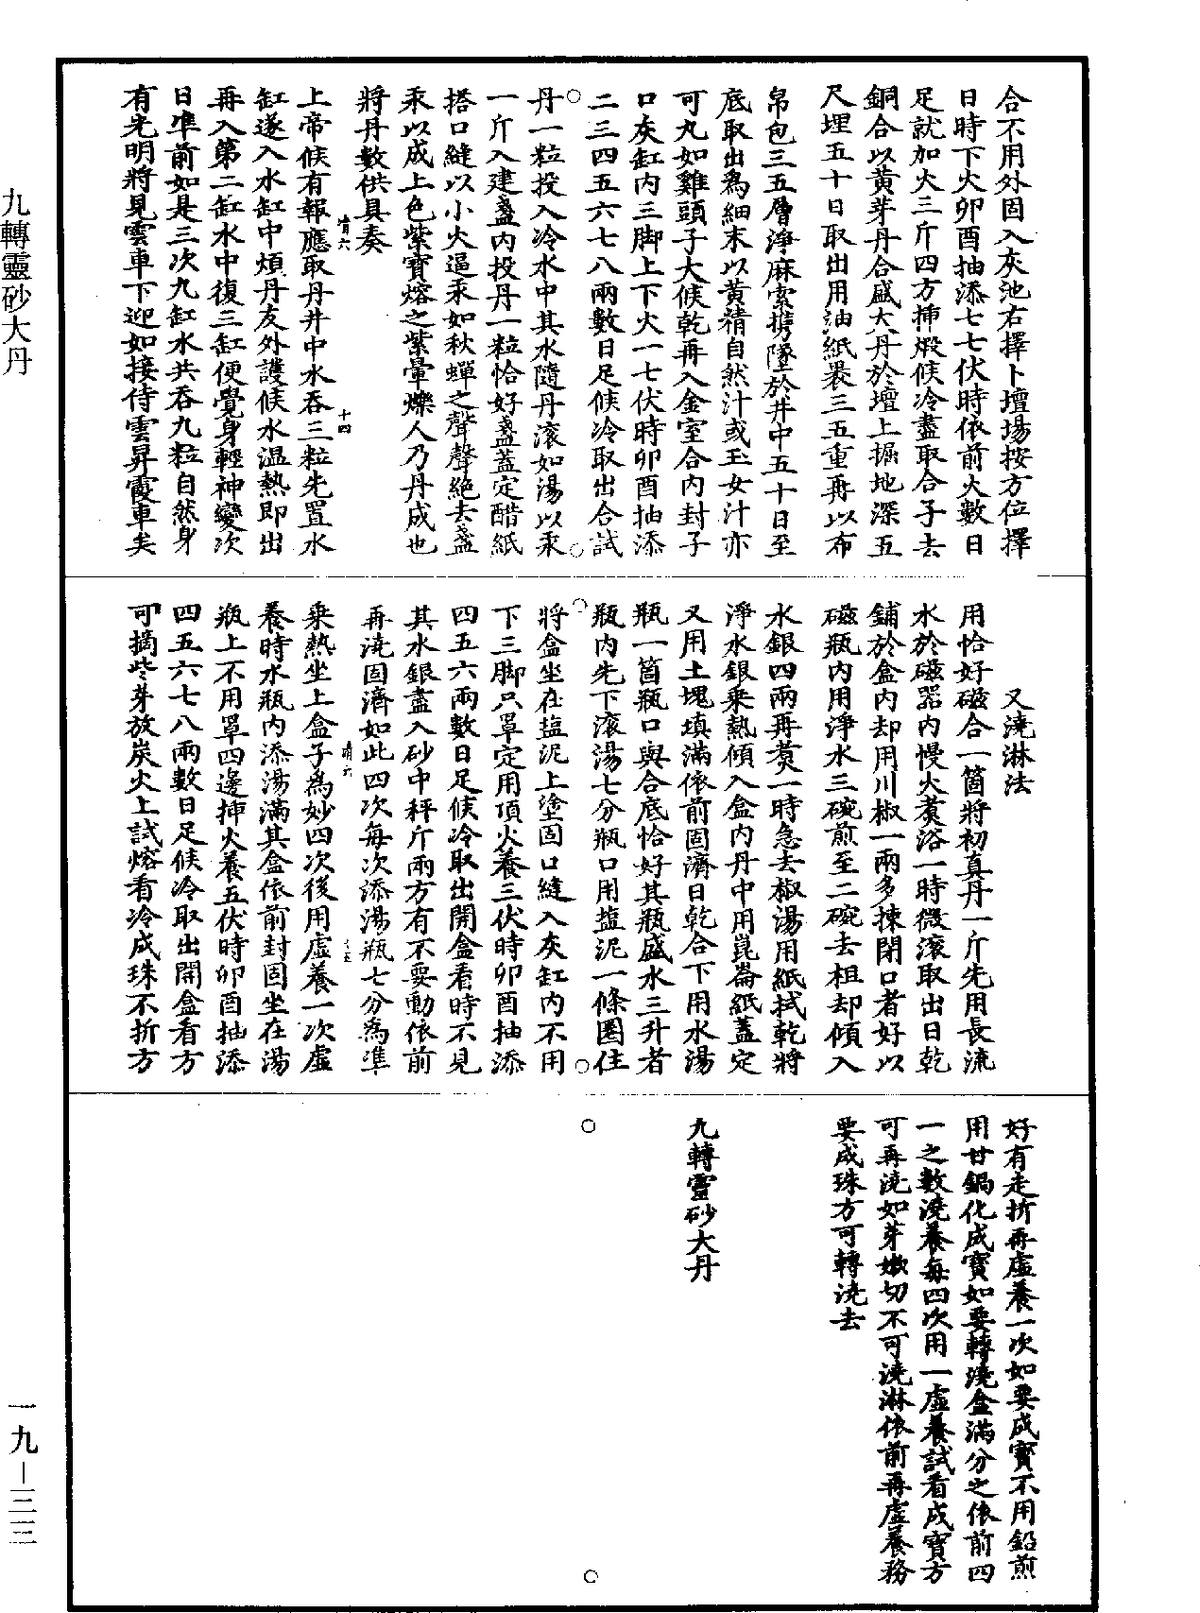 合不用外固入灰池右擇卜壇場按方位擇
日時下火卯酉抽添七七伏時依前火數日
足就加火三斤四方揷煅候冷盡取合子去
銅合以黃芽丹合盛大丹於壇上掘地深五
尺埋五十日取出用油紙裹三五重再以布
帛包三五層淨麻索携墜於井中五十日至
底取出爲細末以黃精自然汁或玉女汁亦
可丸如雞頭子大候乾再入金室合內封子
口灰缸內三脚上下火一七伏時卯酉抽添
二三四五六七八兩數日足候冷取出合試
丹一粒投入冷水中其水隨丹滚如湯以汞
一斤入建盞內投丹一粒恰好盞蓋定醋紙
搭口縫以小火逼汞如秋蟬之聲聲絕去盞
汞以成上色紫寶熔之紫暈爍人乃丹成也
將丹數供具奏
上帝候有報應取丹井中水吞三粒先置水
缸遂入水缸中煩丹友外護候水温熱即出
再入第二缸水中復三缸便覺身輕神變次
日準前如是三次九缸水共吞九粒自然身
有光明將見雲車下迎如接侍雲昇霞車矣
又澆淋法
用恰好磁合一箇將初真丹一斤先用長流
水於磁器內慢火煑浴一時微滚取出日乾
鋪於盒內却用川椒一兩多揀閉口者好以
磁瓶內用淨水三碗煎至二碗去柤却傾入
水銀四兩再煑一時急去椒湯用紙拭乾將
淨水銀乘熱傾入盒內丹中用崑崙紙蓋定
又用土塊填滿依前固濟日乾合下用水湯
瓶一箇瓶口與合底恰好其瓶盛水三升者
瓶內先下滚湯七分瓶口用塩泥一條圈住
將盒坐在塩泥上塗固口縫入灰缸內不用
下三脚只罩定用頂火養三伏時卯酉抽添
四五六兩數日足候冷取出開盒看時不見
其水銀盡入砂中秤斤兩方有不要動依前
再澆固濟如此四次每次添湯瓶七分爲準
乘熱坐上盒子為妙四次後用虛養一次虛
養時水瓶內添湯滿其盒依前封固坐在湯
瓶上不用罩四邊揷火養五伏時卯酉抽添
四五六七八兩數日足候冷取出開盒看方
可摘些芽放炭火上試熔看冷成珠不折方
好有走折再虛養一次如要成寶不用鉛煎
用甘鍋化成寶如要轉澆盒滿分之依前四
一之數澆養每四次用一虛養試看成寶方
可再澆如芽嫰切不可澆淋依前再虛養務
要成珠方可轉澆去
九轉靈砂大丹
九轉靈砂大丹
一九—三三